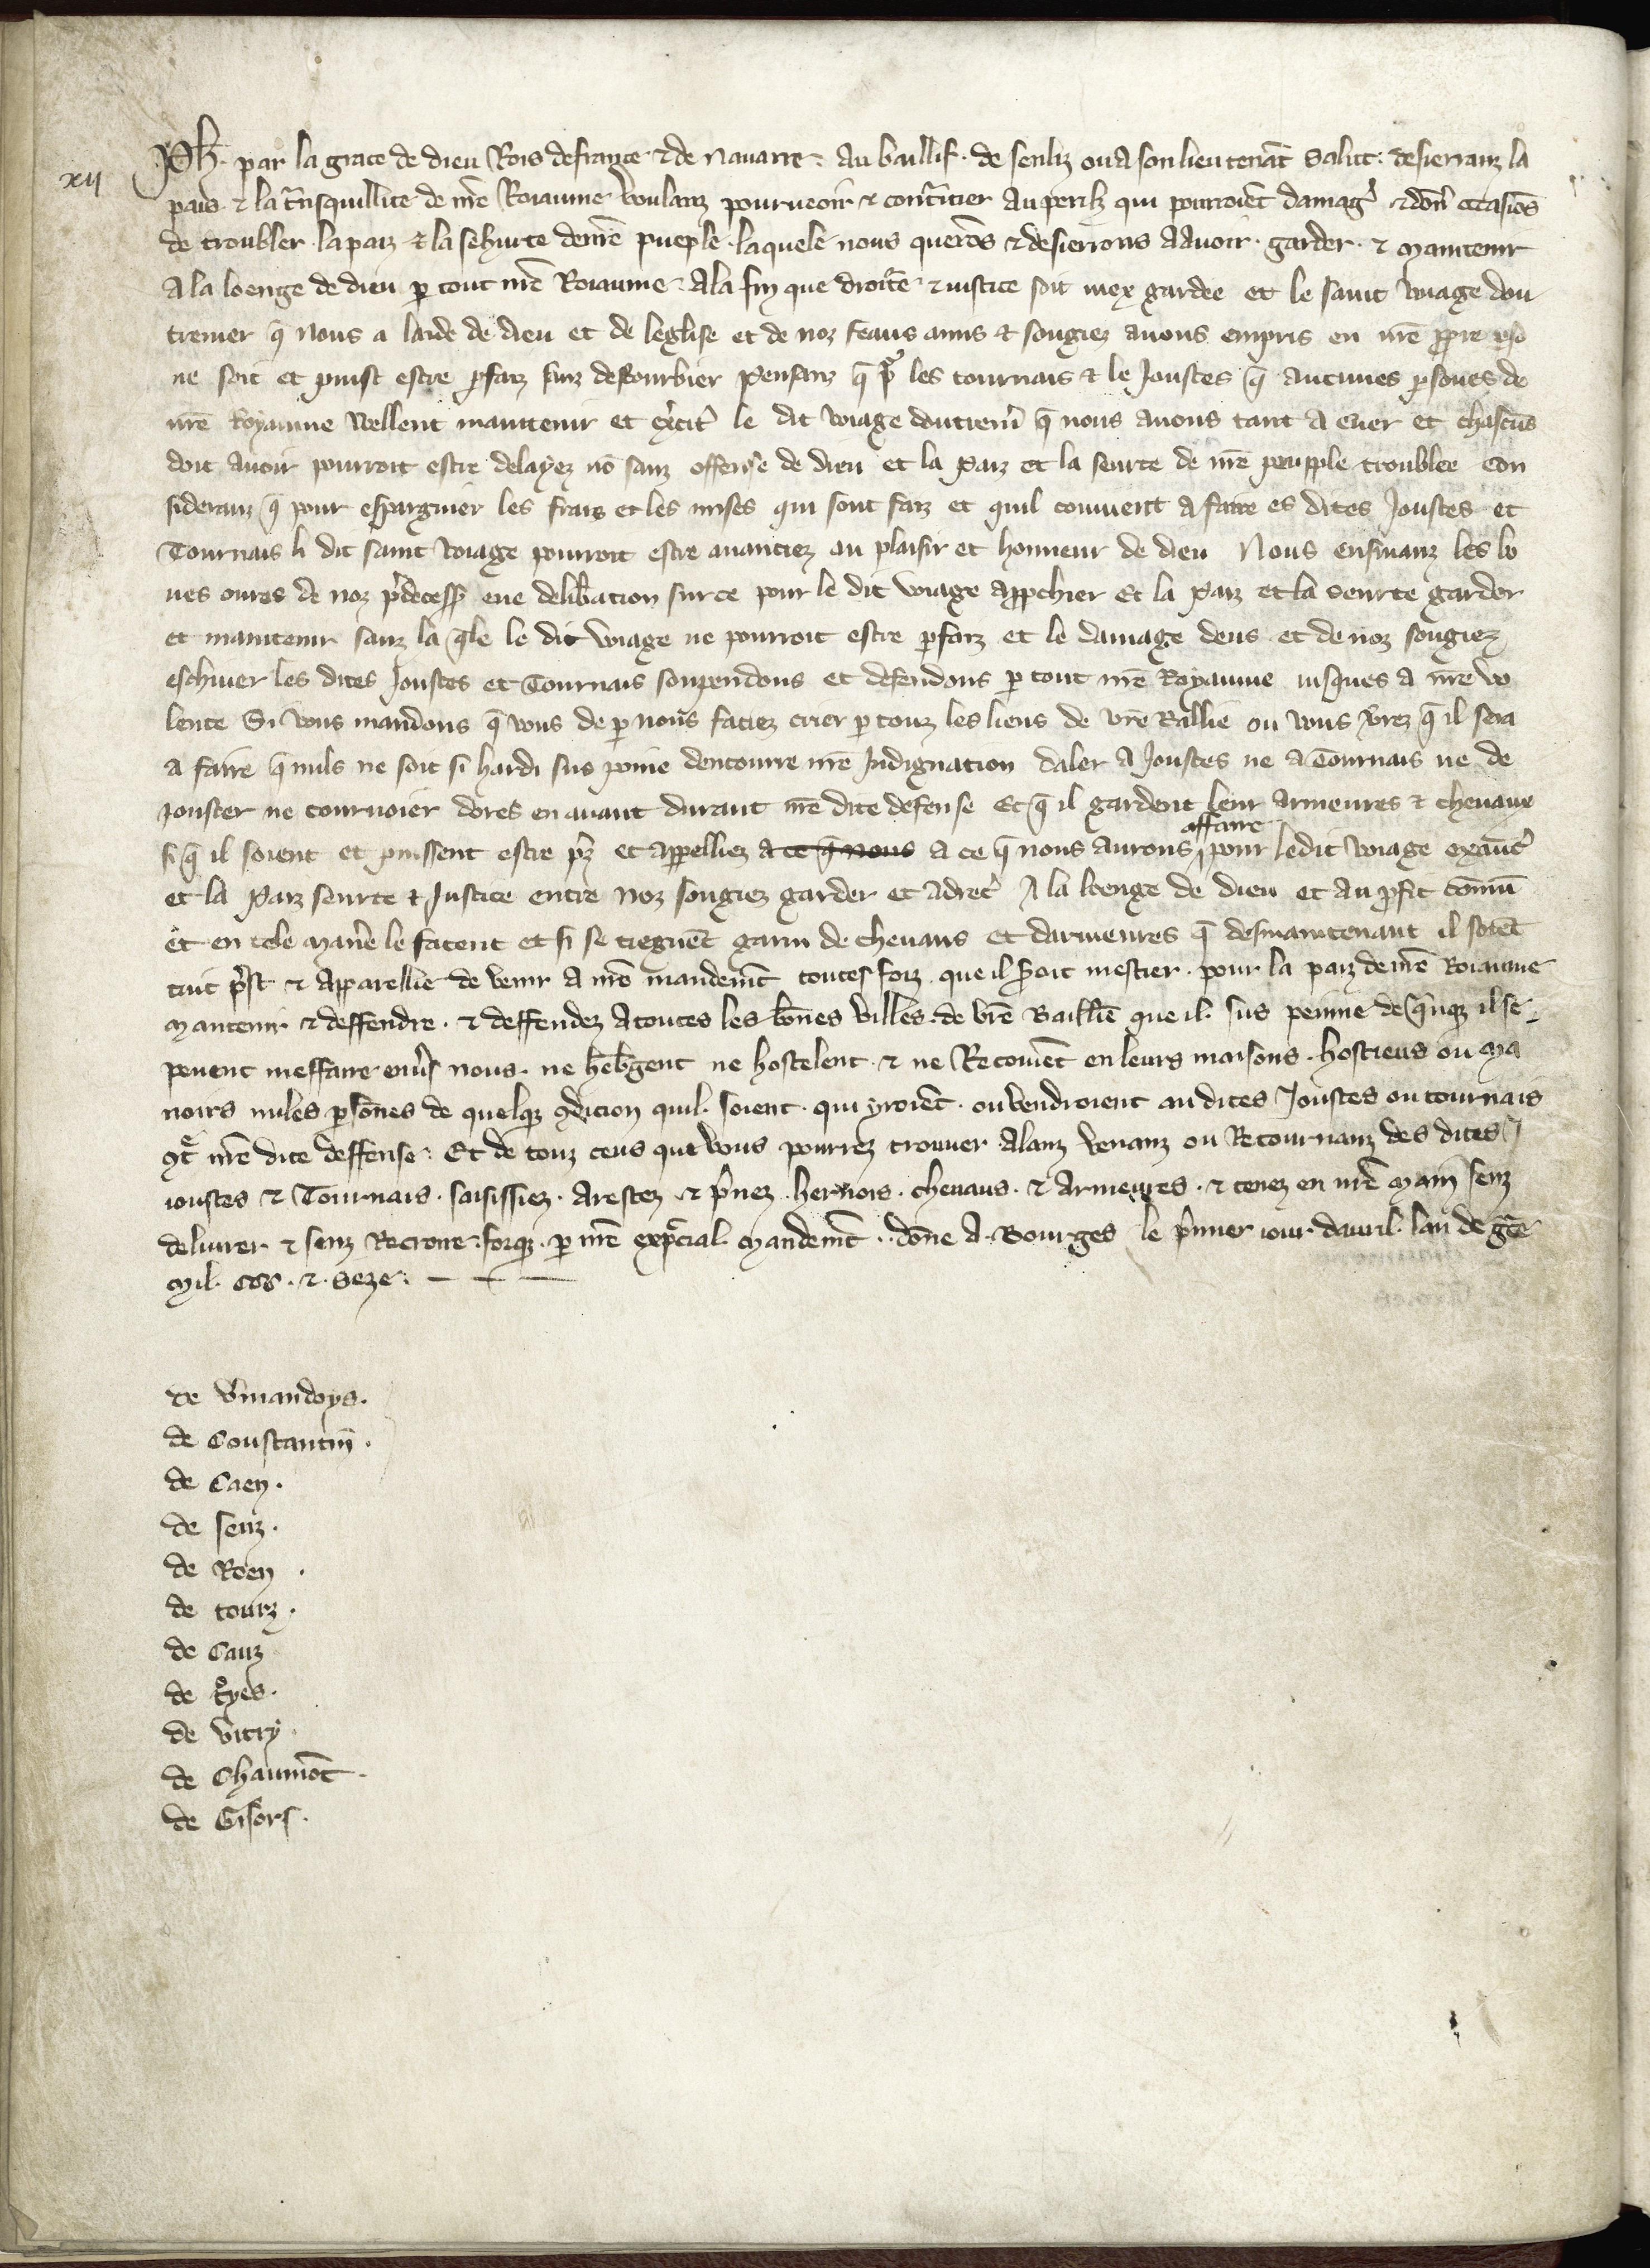 xij
Ph. par la grace de dieu Rois de france & de nauarre. Au baillif. de senliz ou a son lieutenãt Salut. desierranz la
pais. & la trãsquillite de nrẽ Roiaume voulanz pourueoir & contrẽtier au perilz qui pourroiẽt damag' & dõn' occasiõs
de troubler. la paiz & la sehurte de nrẽ pueple. laquele nous querõs & desierrons a avoir. garder. & maintenir
a la loenge de dieu p tout nrẽ Roiaume. A la fin que droiture & iustice soit miex gardee et le saint voiage dou
tremer q̃ nous a laide de dieu et de leglise et de noz feaus amis & sougiez auons empris en nrẽ ppre pso
ne soit et puist estre pfaiz sanz destourbier Pensanz q̃ p' les tournais & le Joustes q̃ aucunes psones de
nrẽ Royaume Vellent maintenir et ex'cit' le dit voiage doutrem' q̃ nous auons tant a cuer et chascũs
doit auoir pourroit estre delayez nõ sanz offense de dieu et la Paiz et la seurte de nrẽ peupple troublee con
sideranz q̃ pour espargnier les frais et les mises qui sont faiz et quil conuient a faire es dites Joustes et
Tournais li dit saint voiage pourroit estre auanciez au plaisir et honneur de dieu Nous ensiuanz les bo
nes oures de noz p'decess' eue delib'ation sur ce pour le dit voiage approchier Et la Paiz et la seurte garder
et maintenir sanz la q̃le le dit voiage ne pourroit estre pfaiz et le damage deus et de noz sougiez
eschiuer les dites Joustes et Tournais souzpendons et defendons p tout nrẽ Royaume iusques a nrẽ vo
lente Si vous mandons q̃ vous de p nous faciez crier p touz les lieus de vrẽ Ballie ou vous v'rez q̃ il sera
a faire q̃ nuls ne soit si hardi sus poine dencourre nrẽ Indignation daler a Joustes ne a Tournais ne de
jouster ne tournoier dores en auant durant nrẽ dite defense Et q̃ il gardent leur armeures & cheuaux
si q̃ il soient et puissent estre p'z et appelliez a ce q̃ nous a ce q̃ nous aurons affaire pour le dit voiage exãuc'
et la Paiz seurte & Justice entre noz sougiez garder et adrec' A la loenge de dieu et au pfit cõmũ
et en tele maner̃e le facent et si se tiegnẽt garni de cheuaus et darmeures q̃ desmaintenant il soiẽt
tuit p'st & apparellie de venir a nrẽ mandem̃t toutes foiz que il s'oit mestier. pour la paiz de nrẽ Roiaume
mantenir & deffendre. & deffendez a toutes les bõnes villes. de vrẽ Baillie que il. sus peinne de q̃nq; il se
peuent meffaire enu's nous. ne heb'gent ne hostelent & ne Recoiuẽt en leurs maisons. hostieus ou ma
noirs nules psõnes de quelq; 9dicion quil. soient. qui yroiẽt. ou vendroient au dites Joustes ou tournais
9t' nrẽ dite deffense. Et de touz ceus que vous pourrez trouuer alanz venanz ou Retournanz des dites
ioustes & Tournais. saisissiez. arestez & p'nez. hernois. cheuaus. & armeures. & tenez en nrẽ main senz
deliurer & senz Recroire. forq;. p nrẽ expẽcial. mandem̃t. dõne a Bourges le p'mier iour. dauril. lan de grẽ
mil. ccc. & seze.

de v'mandoys.
de Constantiñ.
de Caen.
de senz.
de Roen.
de tourz.
de Cauz
de T'yes.
de vitry.
de Chaumõt.
de Gisors.